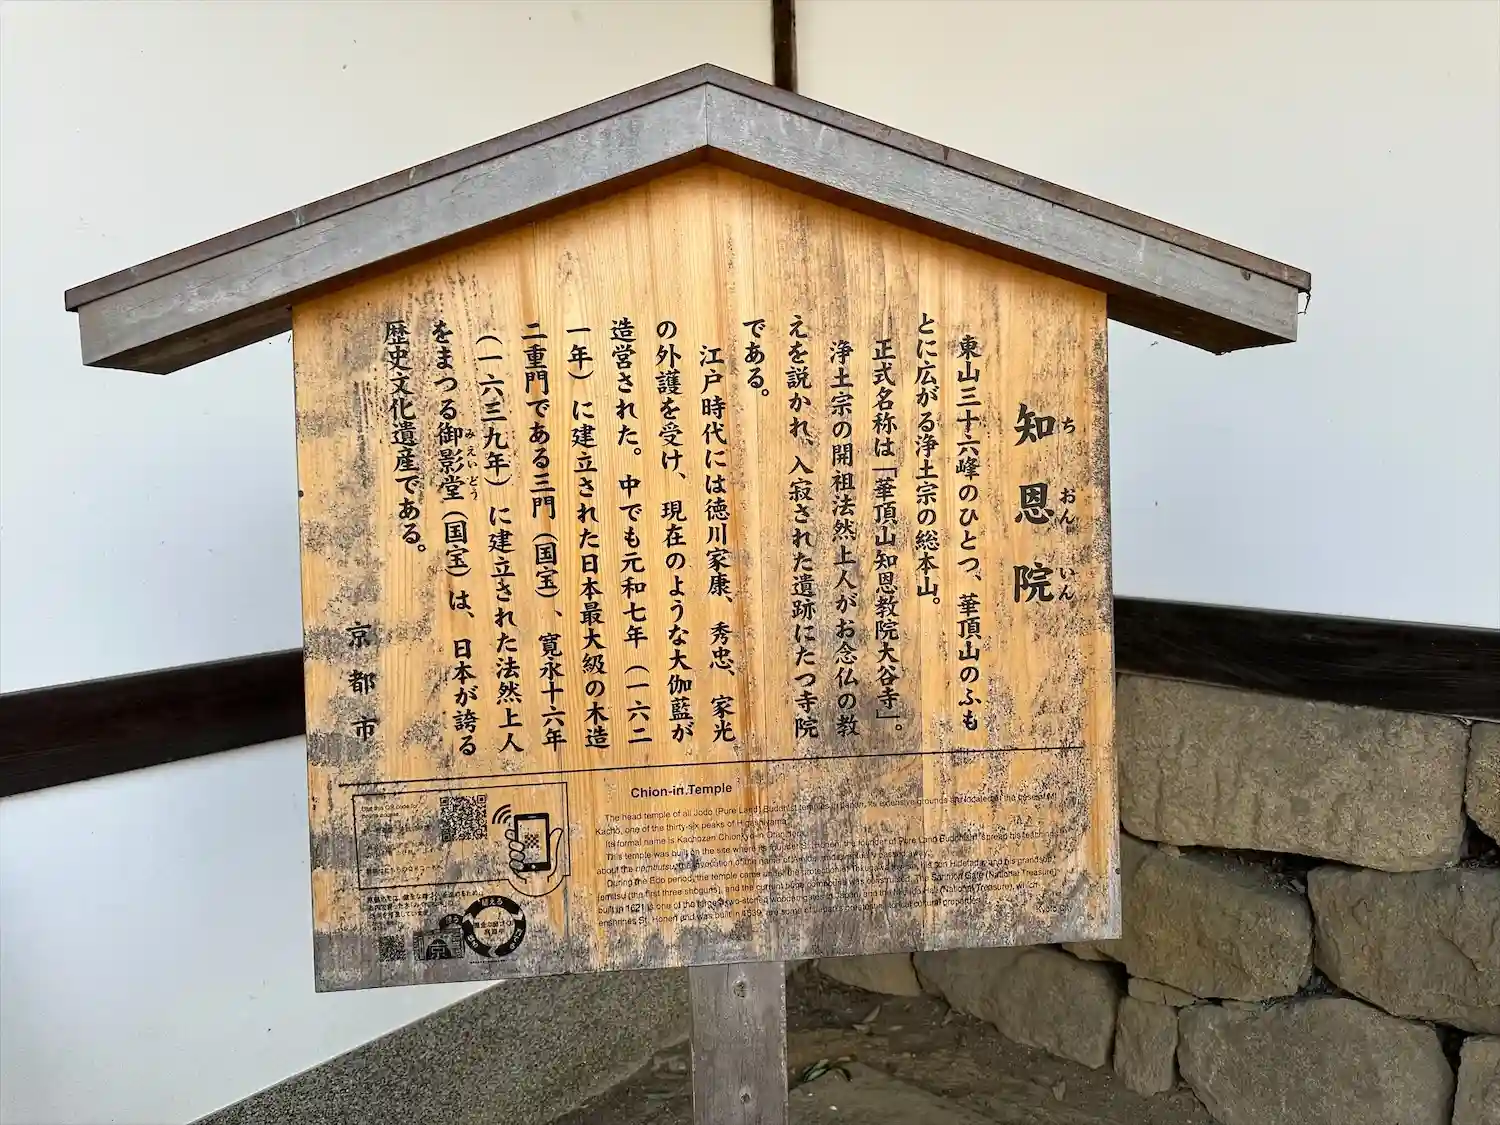 知恩院
ち おん いん
東山三十六峰のひとつ、華頂山のふも
とに広がる浄土宗の総本山。
正式名称は「華頂山知恩教院大谷寺」。
浄土宗の開祖法然上人がお念仏の教
えを説かれ、入寂された遺跡にたつ寺院
である。
江戸時代には徳川家康、秀忠、家光
の外護を受け、現在のような大伽藍が
造営された。中でも元和七年（一六二
一年）に建立された日本最大級の木造
二重門である三門（国宝）、寛永十六年
（一六三九年）に建立された法然上人
をまつる御影堂（国宝）は、日本が誇る
みえいどう
歴史文化遺産である。
京都市
Chion-in Temple
The head temple of all Jodo (Pure Land) Buddhist temples in Japan, its extensive grounds are located at the base of Mt.
Kacho, one of the thirty-six peaks of Higashiyama.
Its formal name is Kachozan Chionkyo-in Otani-dera.
This temple was built on the site where its founder St. Honen, the founder of Pure Land Buddhism, spread his teachings
about the nembutsu, the invocation of the name of Amida
During the Edo period, the temple came under the protection of Tokugawa his son Hidetada, and his grandson
Iemitsu (the first three shoguns), and the current huge complex was constructed. The Sanmon Gate (National Treasure),
built in 1621, is one of the largest two-storied wooden gates in Japan, and the Hall (National Treasure), which
enshrines St. Honen and was built in 1639, are some of Japan's cultural properties.
Kyoto City